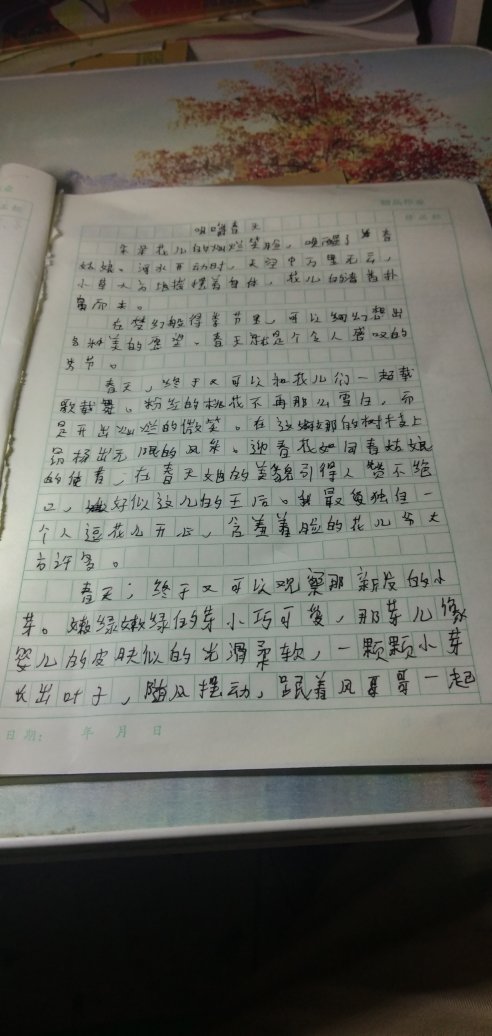 咀嚼春天
朵朵花儿的灿烂笑脸，唤醒了春
姑娘。河水再动时，天空中万里无云，
小草人与地摆着身体，花儿的清香扑
鼻而来。
在梦幻般得季节里，可以细细想出
各种美的愿望。春天就是个令人感叹的
季节。
春天，终于又可以和花儿们一起载
歌载舞。粉红的桃花不再那么雪白，而
是开出灿烂的微笑。在这婀娜的树枝上
昂扬出无限的风采。迎春花如同春姑娘
的使者，在春天她的美貌引得人赞不绝
口，好似这儿的王后。我最爱独自一
个人逗花儿开心，含羞羞脸的花儿当大
方许多。
春天；终于又可以观察那新段的小
芽。嫩绿嫩绿的芽小巧可爱，那芽儿像
婴儿的皮肤似的光滑柔软，一颗颗小芽
长出叶子，随风摆动，跟着风哥哥一起
日期： 年 月 日